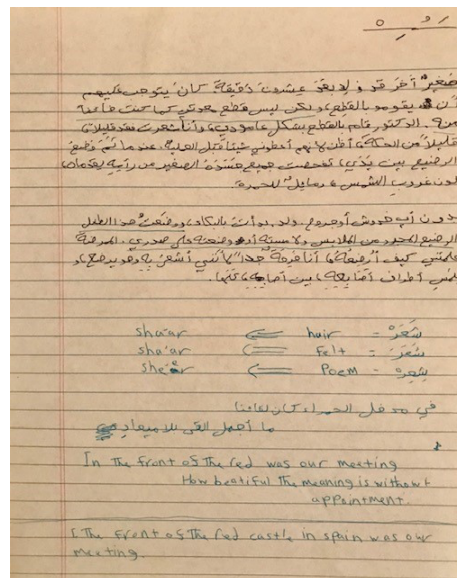 صغير آخر قد ولد بعد عشرون دقيقة. كان يتوجب عليهم
أن يقومو بالقطع، ولكن ليس قطع معوي كما كنت خائفة
منه. الدكتور قام بالقطع بشكل عامودي، وأنا شعرت فقد قليلا
قليلاً من الحكة، أظن لأنهم أعطوني شيئاً قبل العملية. عندما تم وضع
الرضيع بين يدي، تفحصت جميع جسده الصغير من رأسه لقدماه
لون غروب الشمس، ومايل للحمرة.
بدون أي خدوش أو جروح. ولد بدأت بالبكاء، وضعت هذا الطفل
الرضيع المجرد من الملابس وضعته على صدري. الممرضة
علمتني كيف أرضعه، أنا فرحة جدا لأنني أشعر به وهو يرضع، و
لمس أطراف أصابعه بين أصابعي
شَعَرْ - hair ⇐ sha'ar
شَعَرَ - Felt ⇐ sha'ar
شِعِرْ - Poem ⇐ she'er
في مدخل الحمراء كان لقاءنا
ما أجمل القى بلا ميعاد
In The front of The red was our meeting
How beatiful The meaning is without
appointment.
The front of The red castle in spain was our
meeting.